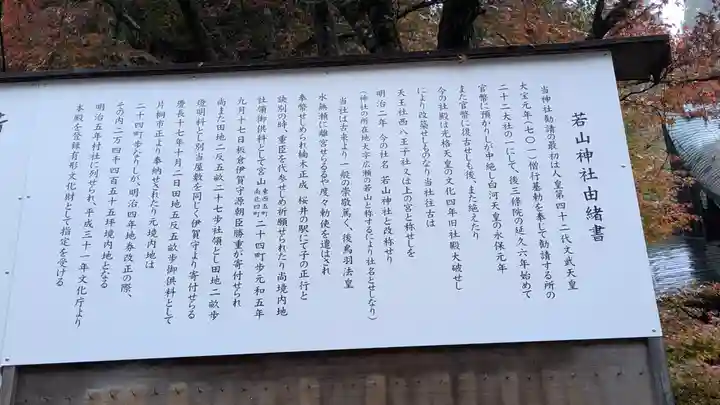 若山神社由緒書
当神社勧請の最初は人皇第四十二代文武天皇
大宝元年(七〇一)僧行基勅を奉して勧請する所の
二十二大社の一にして、後三條院の延久六年始めて
官幣に預かりしが中絶し、白河天皇の永保元年
また官幣に復古せしも後、また絶えたり
今の社殿は光格天皇の文化四年旧社殿大破せし
により改築せしものなり当社往古は
天王社西八王子社又は上の宮と称せしを
明治二年 今の社名 若山神社と改称せり
(神社の所在地大字広瀬の若山と称するにより社名とせしなり)
当社は古来より一般の崇敬篤く、後鳥羽法皇
水無瀬に離宮せらるるや度々勅使を遣はされ
奉幣せしめられ楠木正成 桜井の駅にて子の正行と
訣別の時、重臣を代参せしめ祈願せられたり尚境内地
社領御供料として宮山 東西五町 南北四町 二十四町歩元和五年
九月十七日板倉伊賀守源朝臣勝重が寄付せられ
尚また田地二反五畝二十七歩社領とし田地二畝歩
燈明料とし別当屋敷を同じく伊賀守より寄付せらる
慶長十七年十月二日田地五反五畝歩御供料として
片桐市正より奉納せされたり元境内地は
二十四町歩なりしが、明治四年地券改正の際、
その内二万四千四百五十五坪境内地となる
明治五年村社に列せられ、平成三十一年文化庁より
本殿を登録有形文化財として指定を受ける